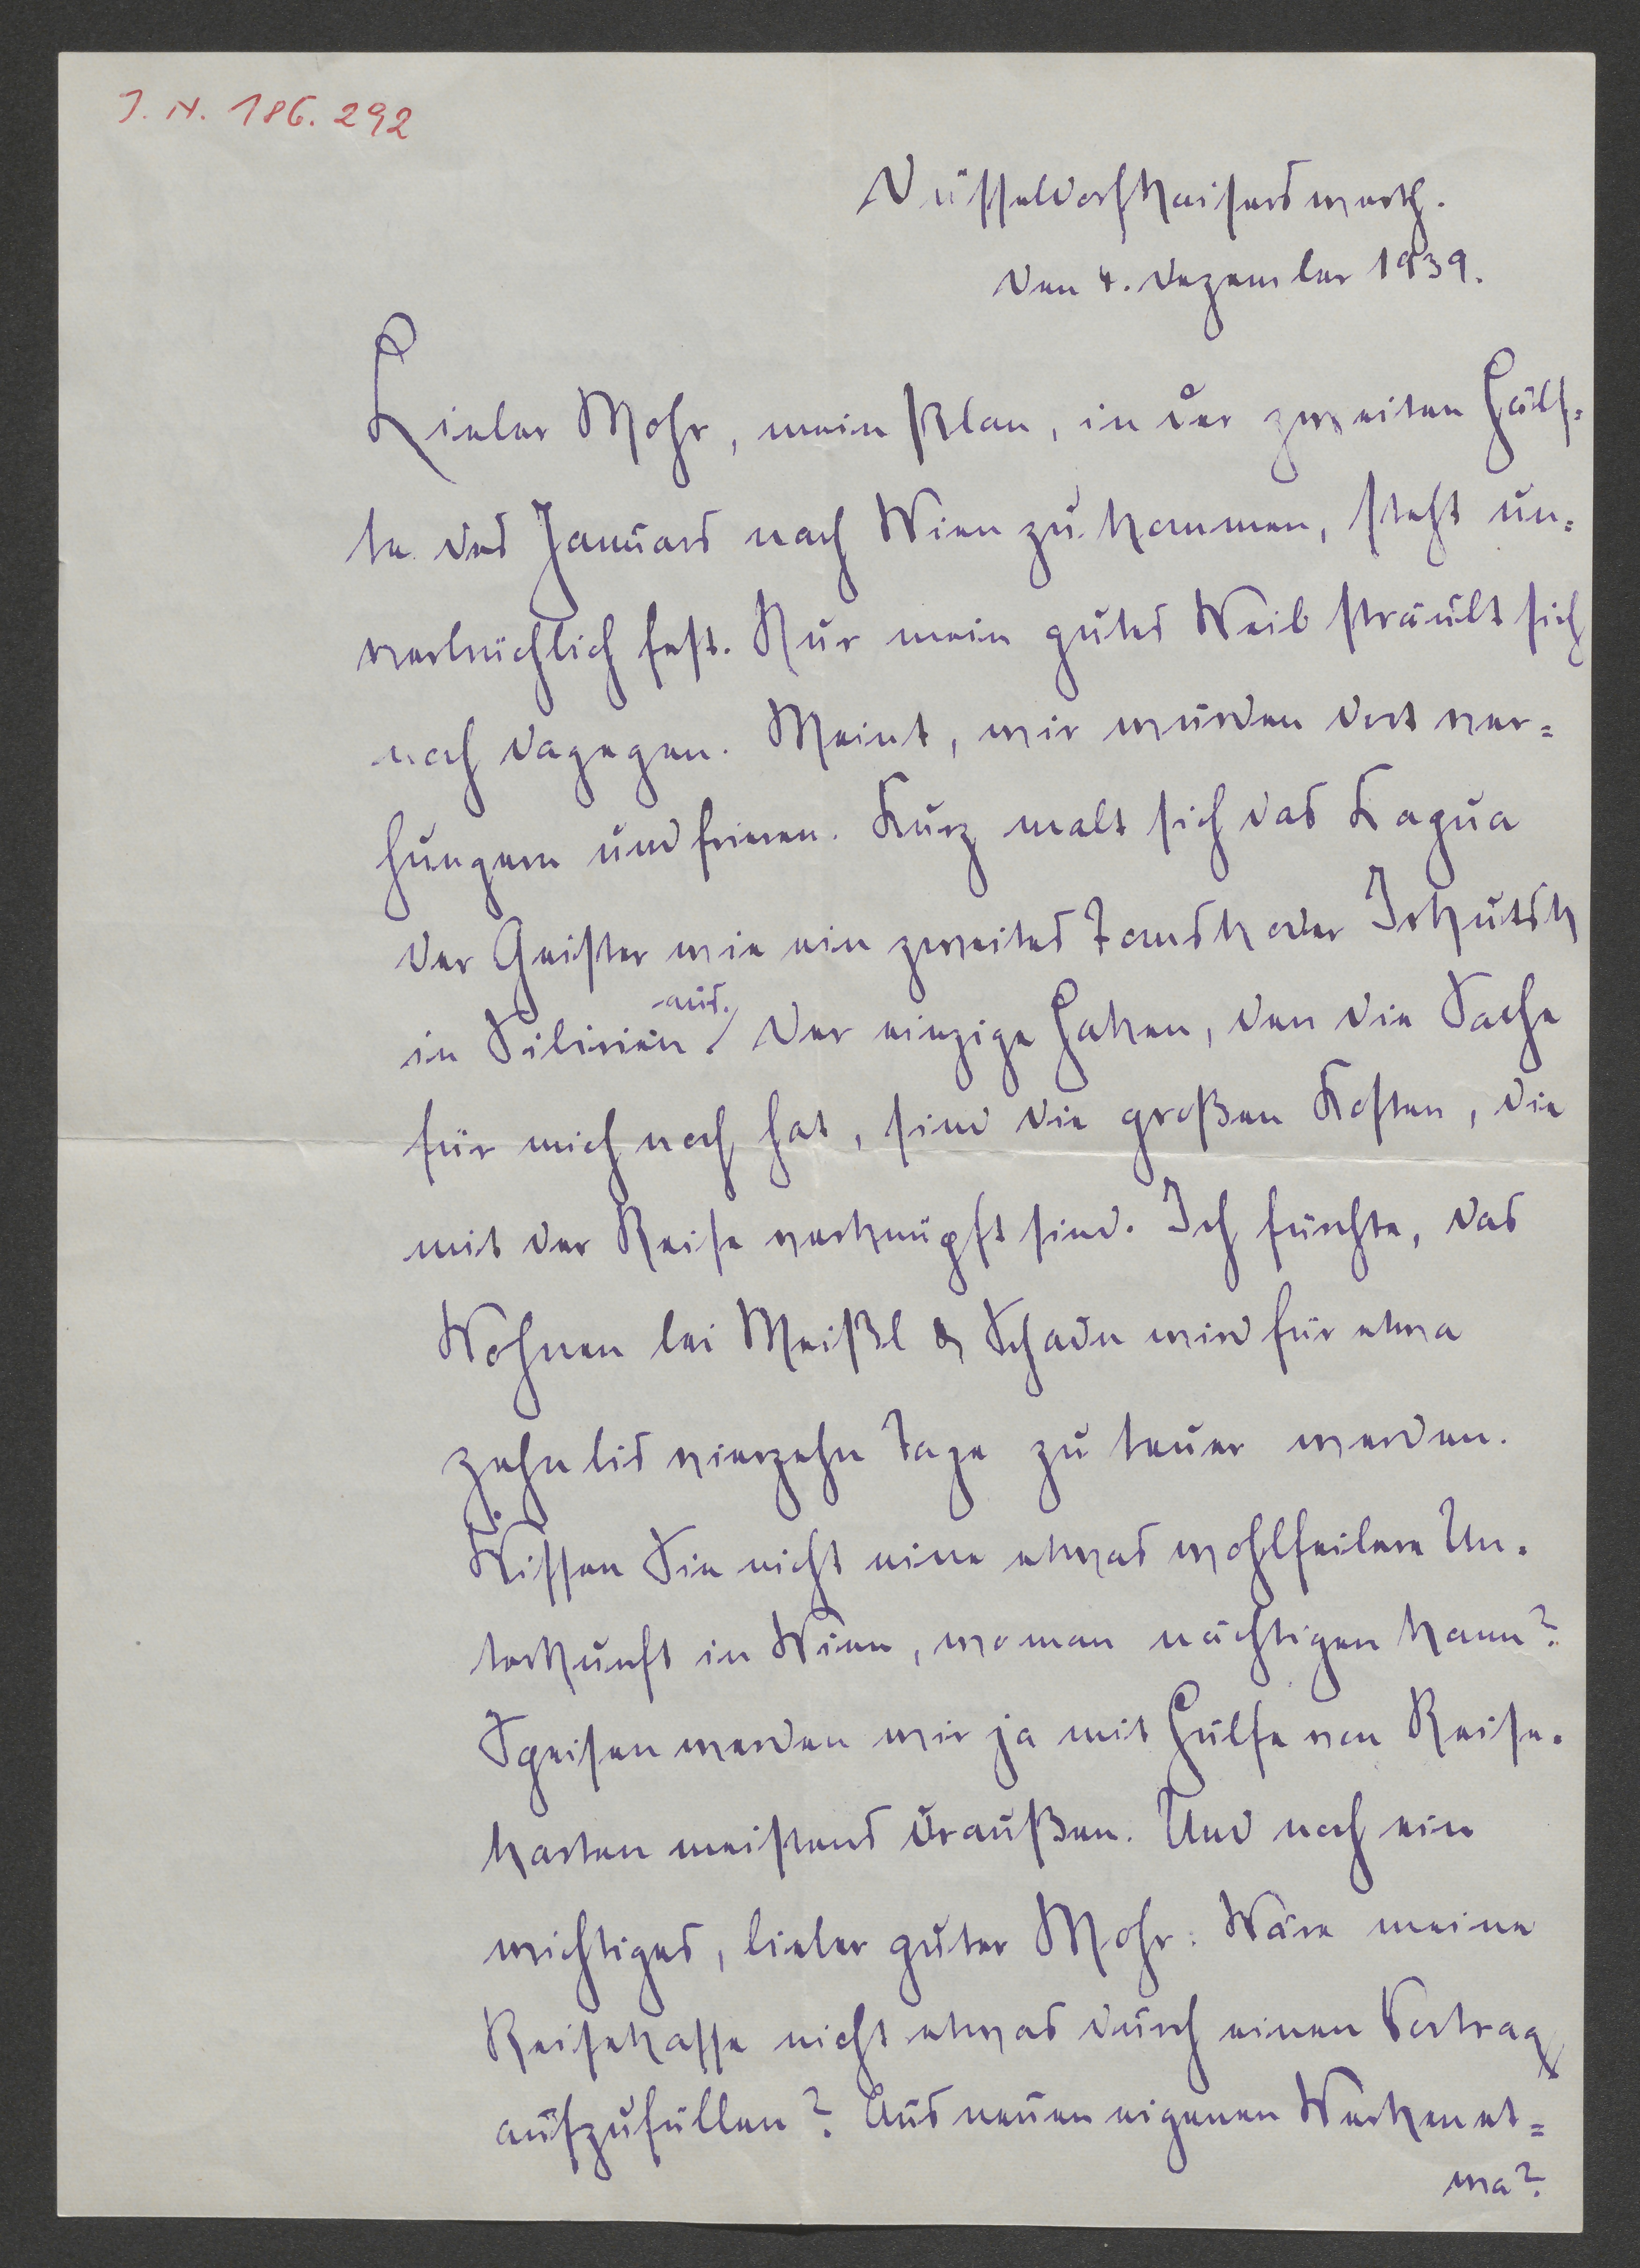 I. N. 186.292
Düsseldorf Kaiserswerth.
den 4. Dezember 1939.
Lieber Mohr, mein Plan, in der zweiten Hälf-
te des Januars nach Wien zu kommen, steht un-
verbrüchlich fest. Nur mein gutes Weib sträubt sich
noch dagegen. Meint, wir würden dort ver-
hungern und frieren. Kurz malt sich das Kapua
der Geister wie ein zweites Tomsk oder Irkutsk
in Sibirien aus. Der einzige Haken, den die Sache
für mich noch hat, sind die großen Kosten, die
mit der Reise verknüpft sind. Ich fürchte, das
Wohnen bei Meißl & Schadn wird für etwa
zehn bis vierzehn Tage zu teuer werden.
Wissen Sie nicht eine etwas wohlfeilere Un-
terkunft in Wien, wo man nächtigen kann?
Speisen werden wir ja mit Hülfe von Reise-
karten meistens draußen. Und noch ein
wichtiges, lieber guter Mohr: Wäre meine
Reisekasse nicht etwas durch einen Vortrag
aufzufüllen? Aus neuen eigenen Werken et-
wa?